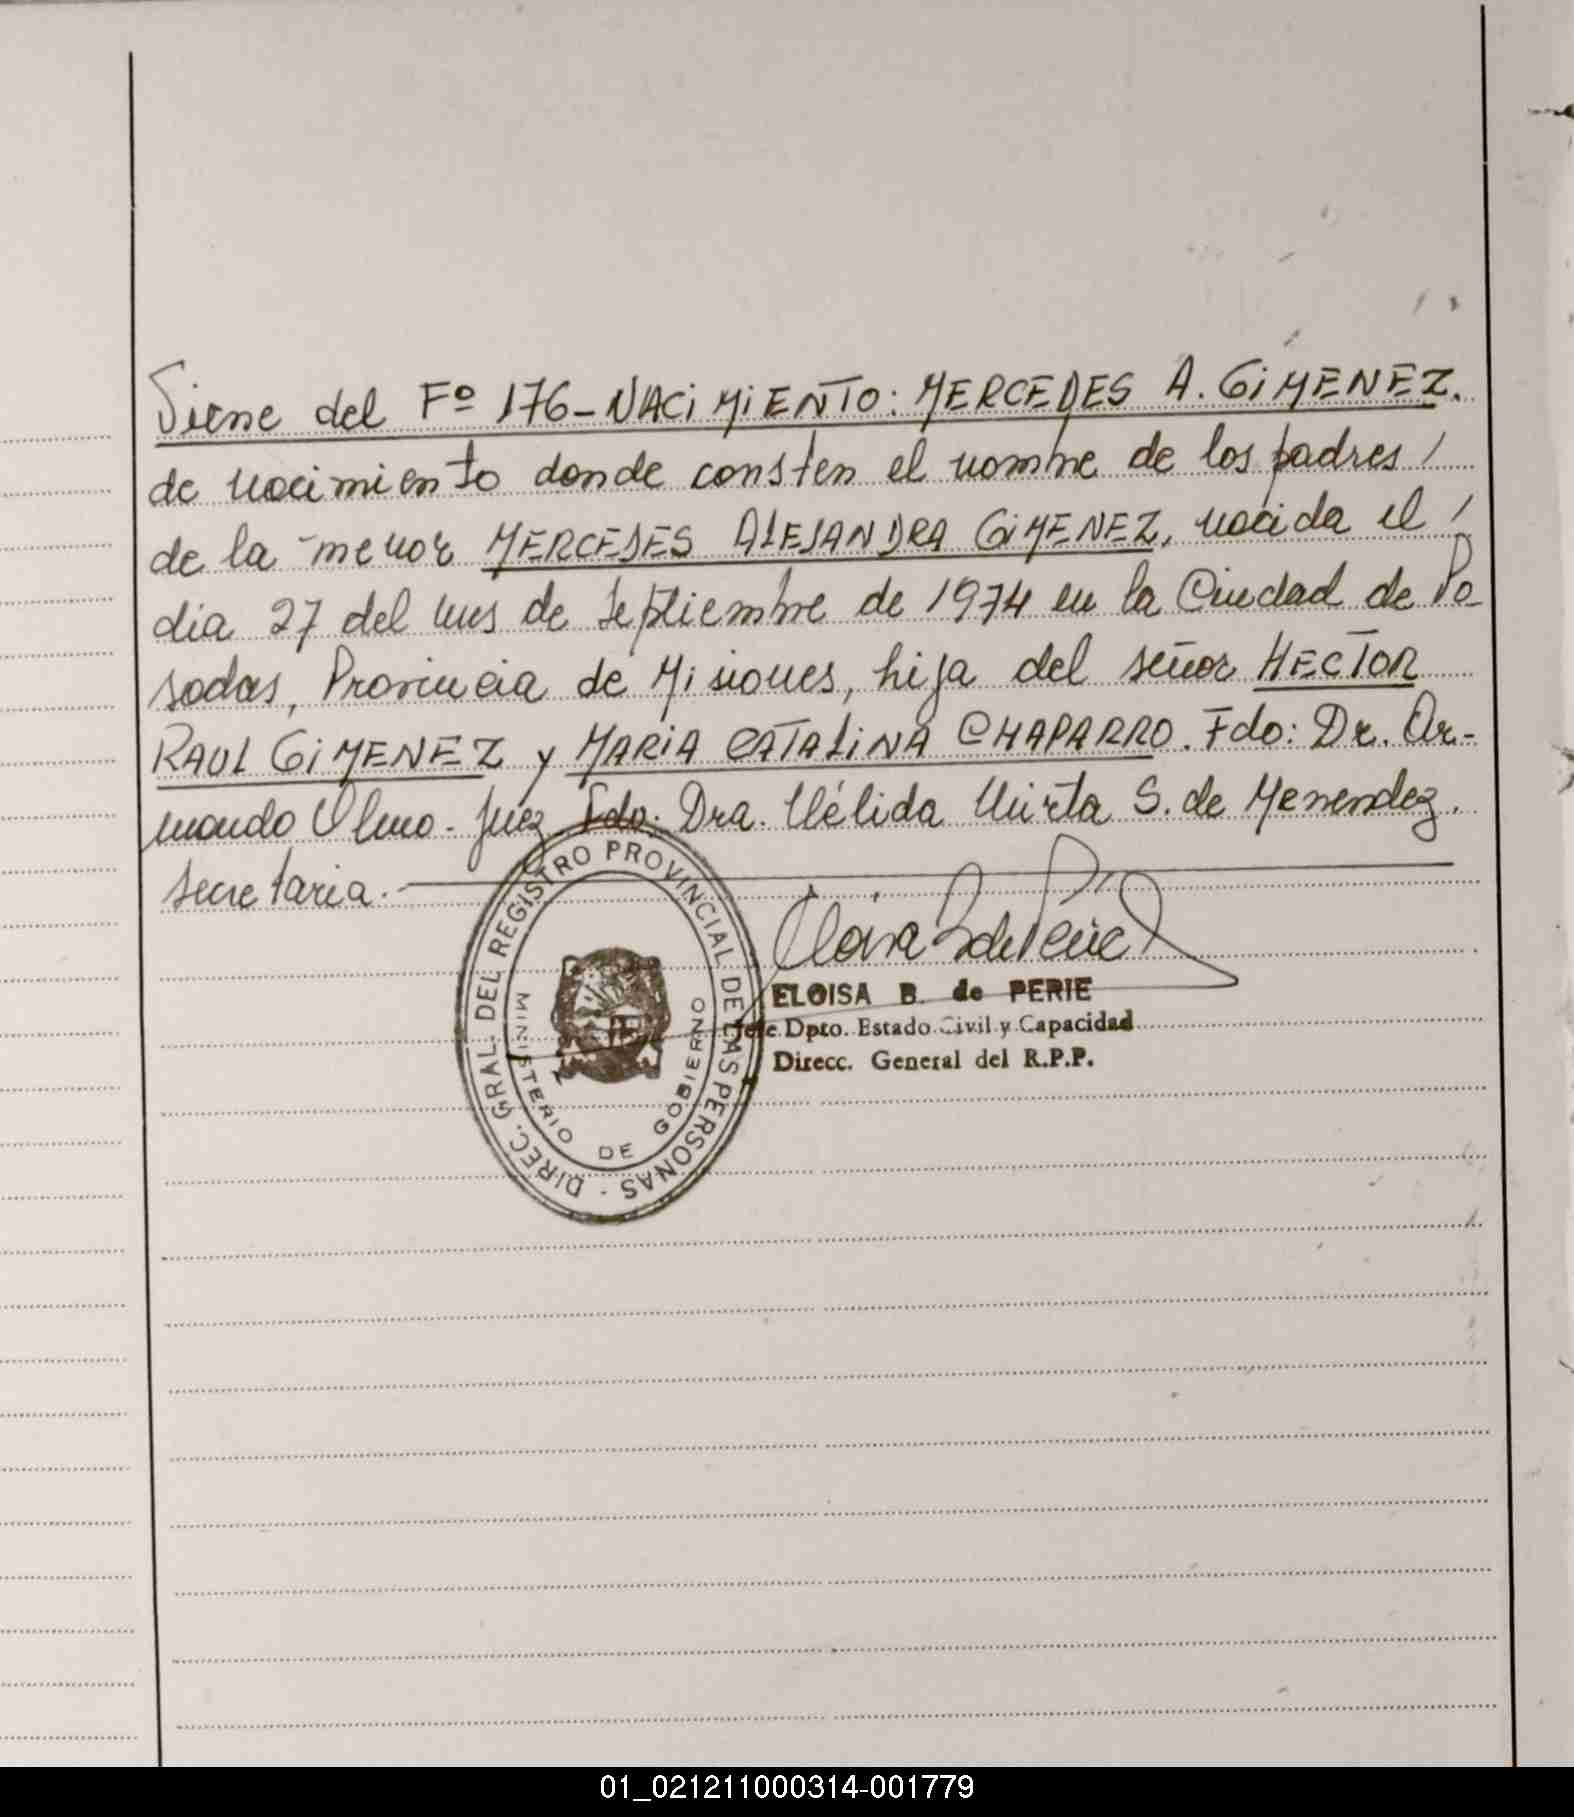 Viene del Fº 176-NACiMiENTO: MERCEDES A. GiMENEZ.
de nacimiento donde consten el nombre de los padres /
de la menor MERCEDES ALEJANDRA GiMENEZ, nacida el /
dia 27 del mes de Septiembre de 1974 en la Ciudad de Po-
sadas, Provincia de Misiones, hija del señor HECTOR
RAUL GiMENEZ y MARiA CATALiNA CHAPARRO. Fdo: Dr. Ar-
mando Olmo - Juez Fdo: Dra. Nélida Mirta S. de Menendez.
secretaria.
DIREC. GRAL. DEL REGISTRO PROVINCIAL DE LAS PERSONAS -
MINISTERIO DE GOBIERNO
ELOISA B. de PERIE
Jefe Dpto. Estado Civil y Capacidad
Direcc. General del R.P.P.
01_021211000314-001779